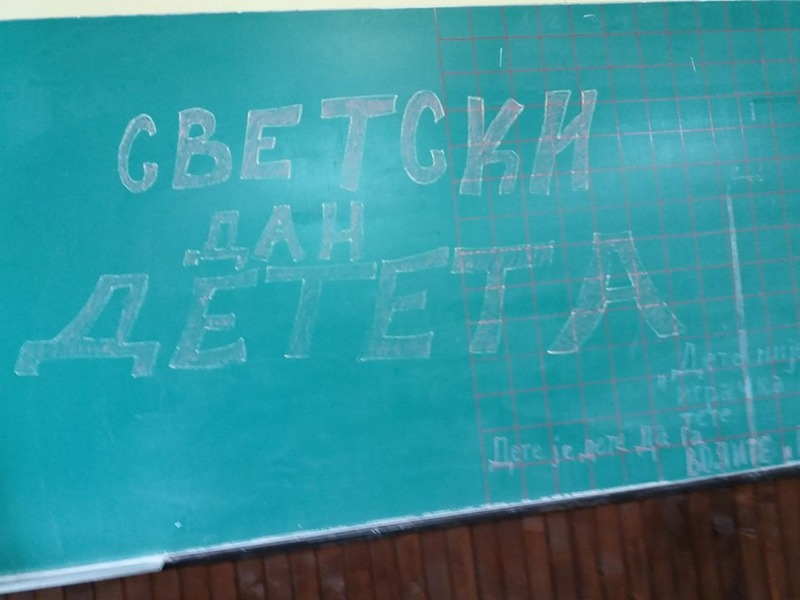 СВЕТСКИ
ДАН
ДЕТЕТА
Дете
играчка
тете
Дете је дете да га
ВОЛИТЕ и